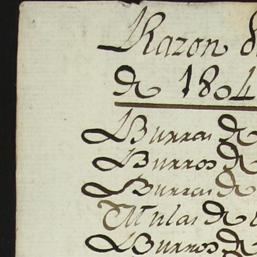 Razon d
de 1804
Burras de
Burros de
Burras de
Mulas de
Burros de